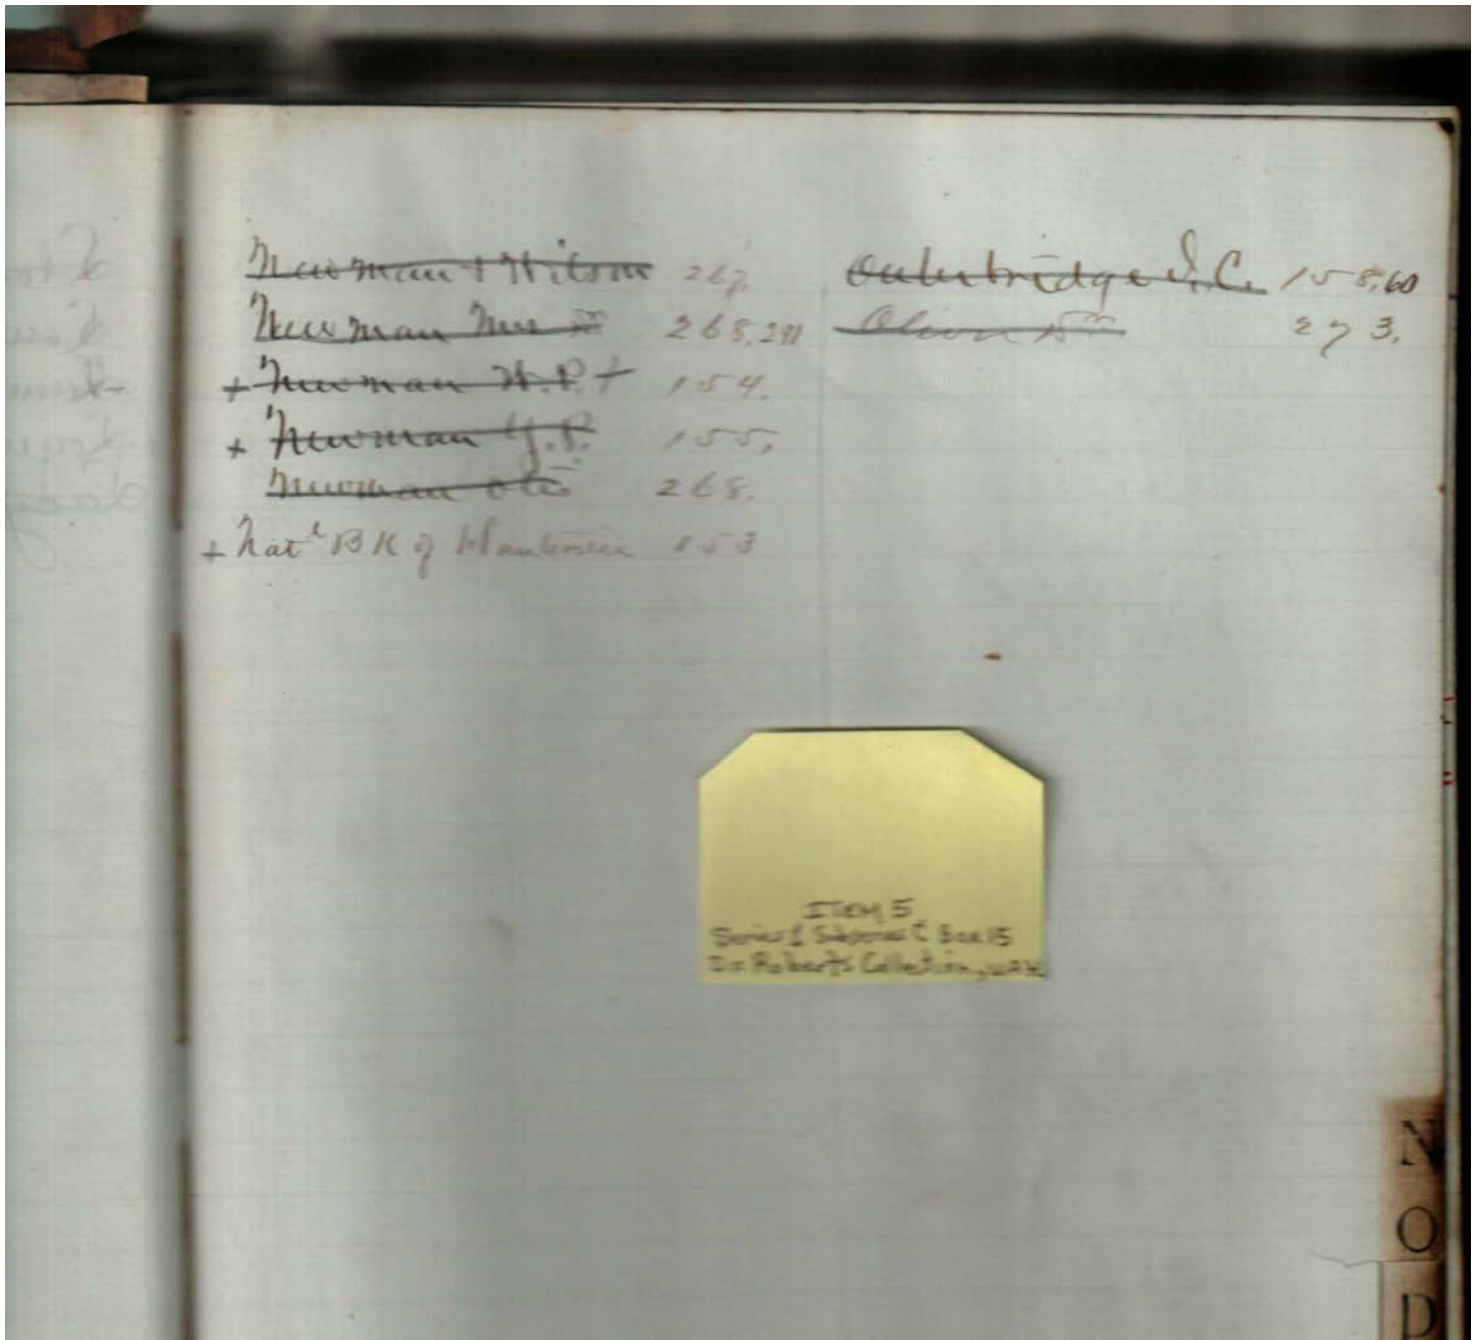 Newman + Wilson 267.
Newman Mrs 268.291
+ Newman W.P. + 154.
+ Newman J.P. 155,
Newman 268.
+ Natl BK of 153
Outerbridge J.C. 158,60
Oliver 273.
ITEM 5
Series 1 Subseries C Box 15
Roberts Collection,
N
O
D